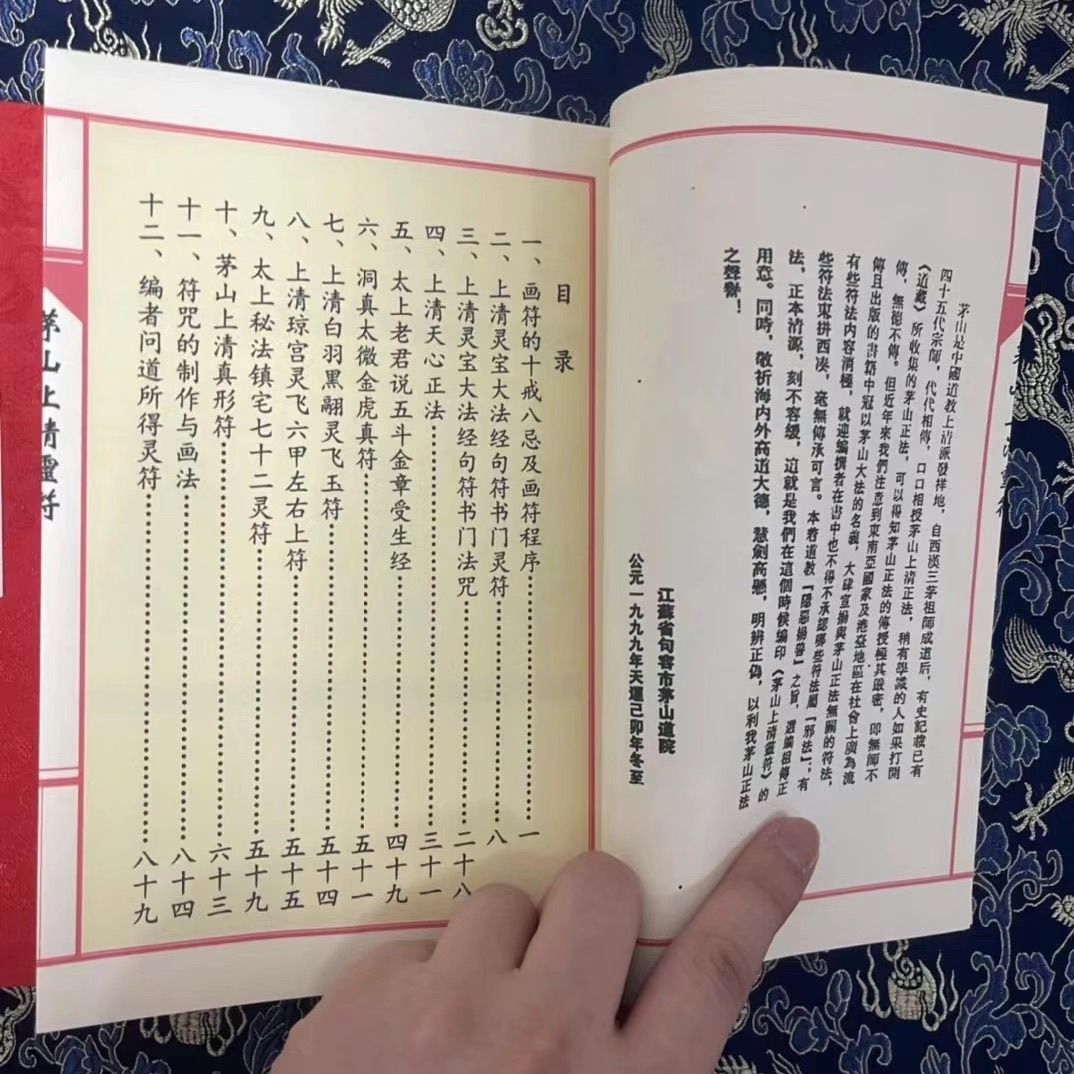 茅山是中國道教上清派發祥地，自西漢三茅祖師成道后，有史記載已有
四十五代宗師，代代相傳，口口相授茅山上清正法，稍有學識的人如果打開
《道藏》所收集的茅山正法，可以得知茅山正法的傳授極其嚴密，即無師不
傳，無德不傳。但近年來我們注意到東南亞國家及港臺地區在社會上廣為流
傳且出版的書籍中冠以茅山大法的名義，大肆宣揚與茅山正法無關的符法，
有些符法內容消極，就連編撰者在書中也不得不承認哪些符法屬『邪法』；有
些符法東拼西凑，毫無傳承可言。本着道教『隱惡揚善』之旨，選編祖傳正
法，正本清源，刻不容緩，這就是我們在這個時候編印《茅山上清靈符》的
用意。同時，敬祈海內外高道大德，慧劍高懸，明辨正偽，以利我茅山正法
之聲譽！
江蘇省句容市茅山道院
公元一九九九年天運己卯年冬至
目录
一、画符的十戒八忌及画符程序……一
二、上清灵宝大法经句符书门灵符……八
三、上清灵宝大法经句符书门法咒……二十八
四、上清天心正法……三十一
五、太上老君说五斗金章受生经……四十九
六、洞真太微金虎真符……五十一
七、上清白羽黑翮灵飞玉符……五十四
八、上清琼宫灵飞六甲左右上符……五十五
九、太上秘法镇宅七十二灵符……五十九
十、茅山上清真形符……六十三
十一、符咒的制作与画法……八十四
十二、编者问道所得灵符……八十九
茅山上清靈符